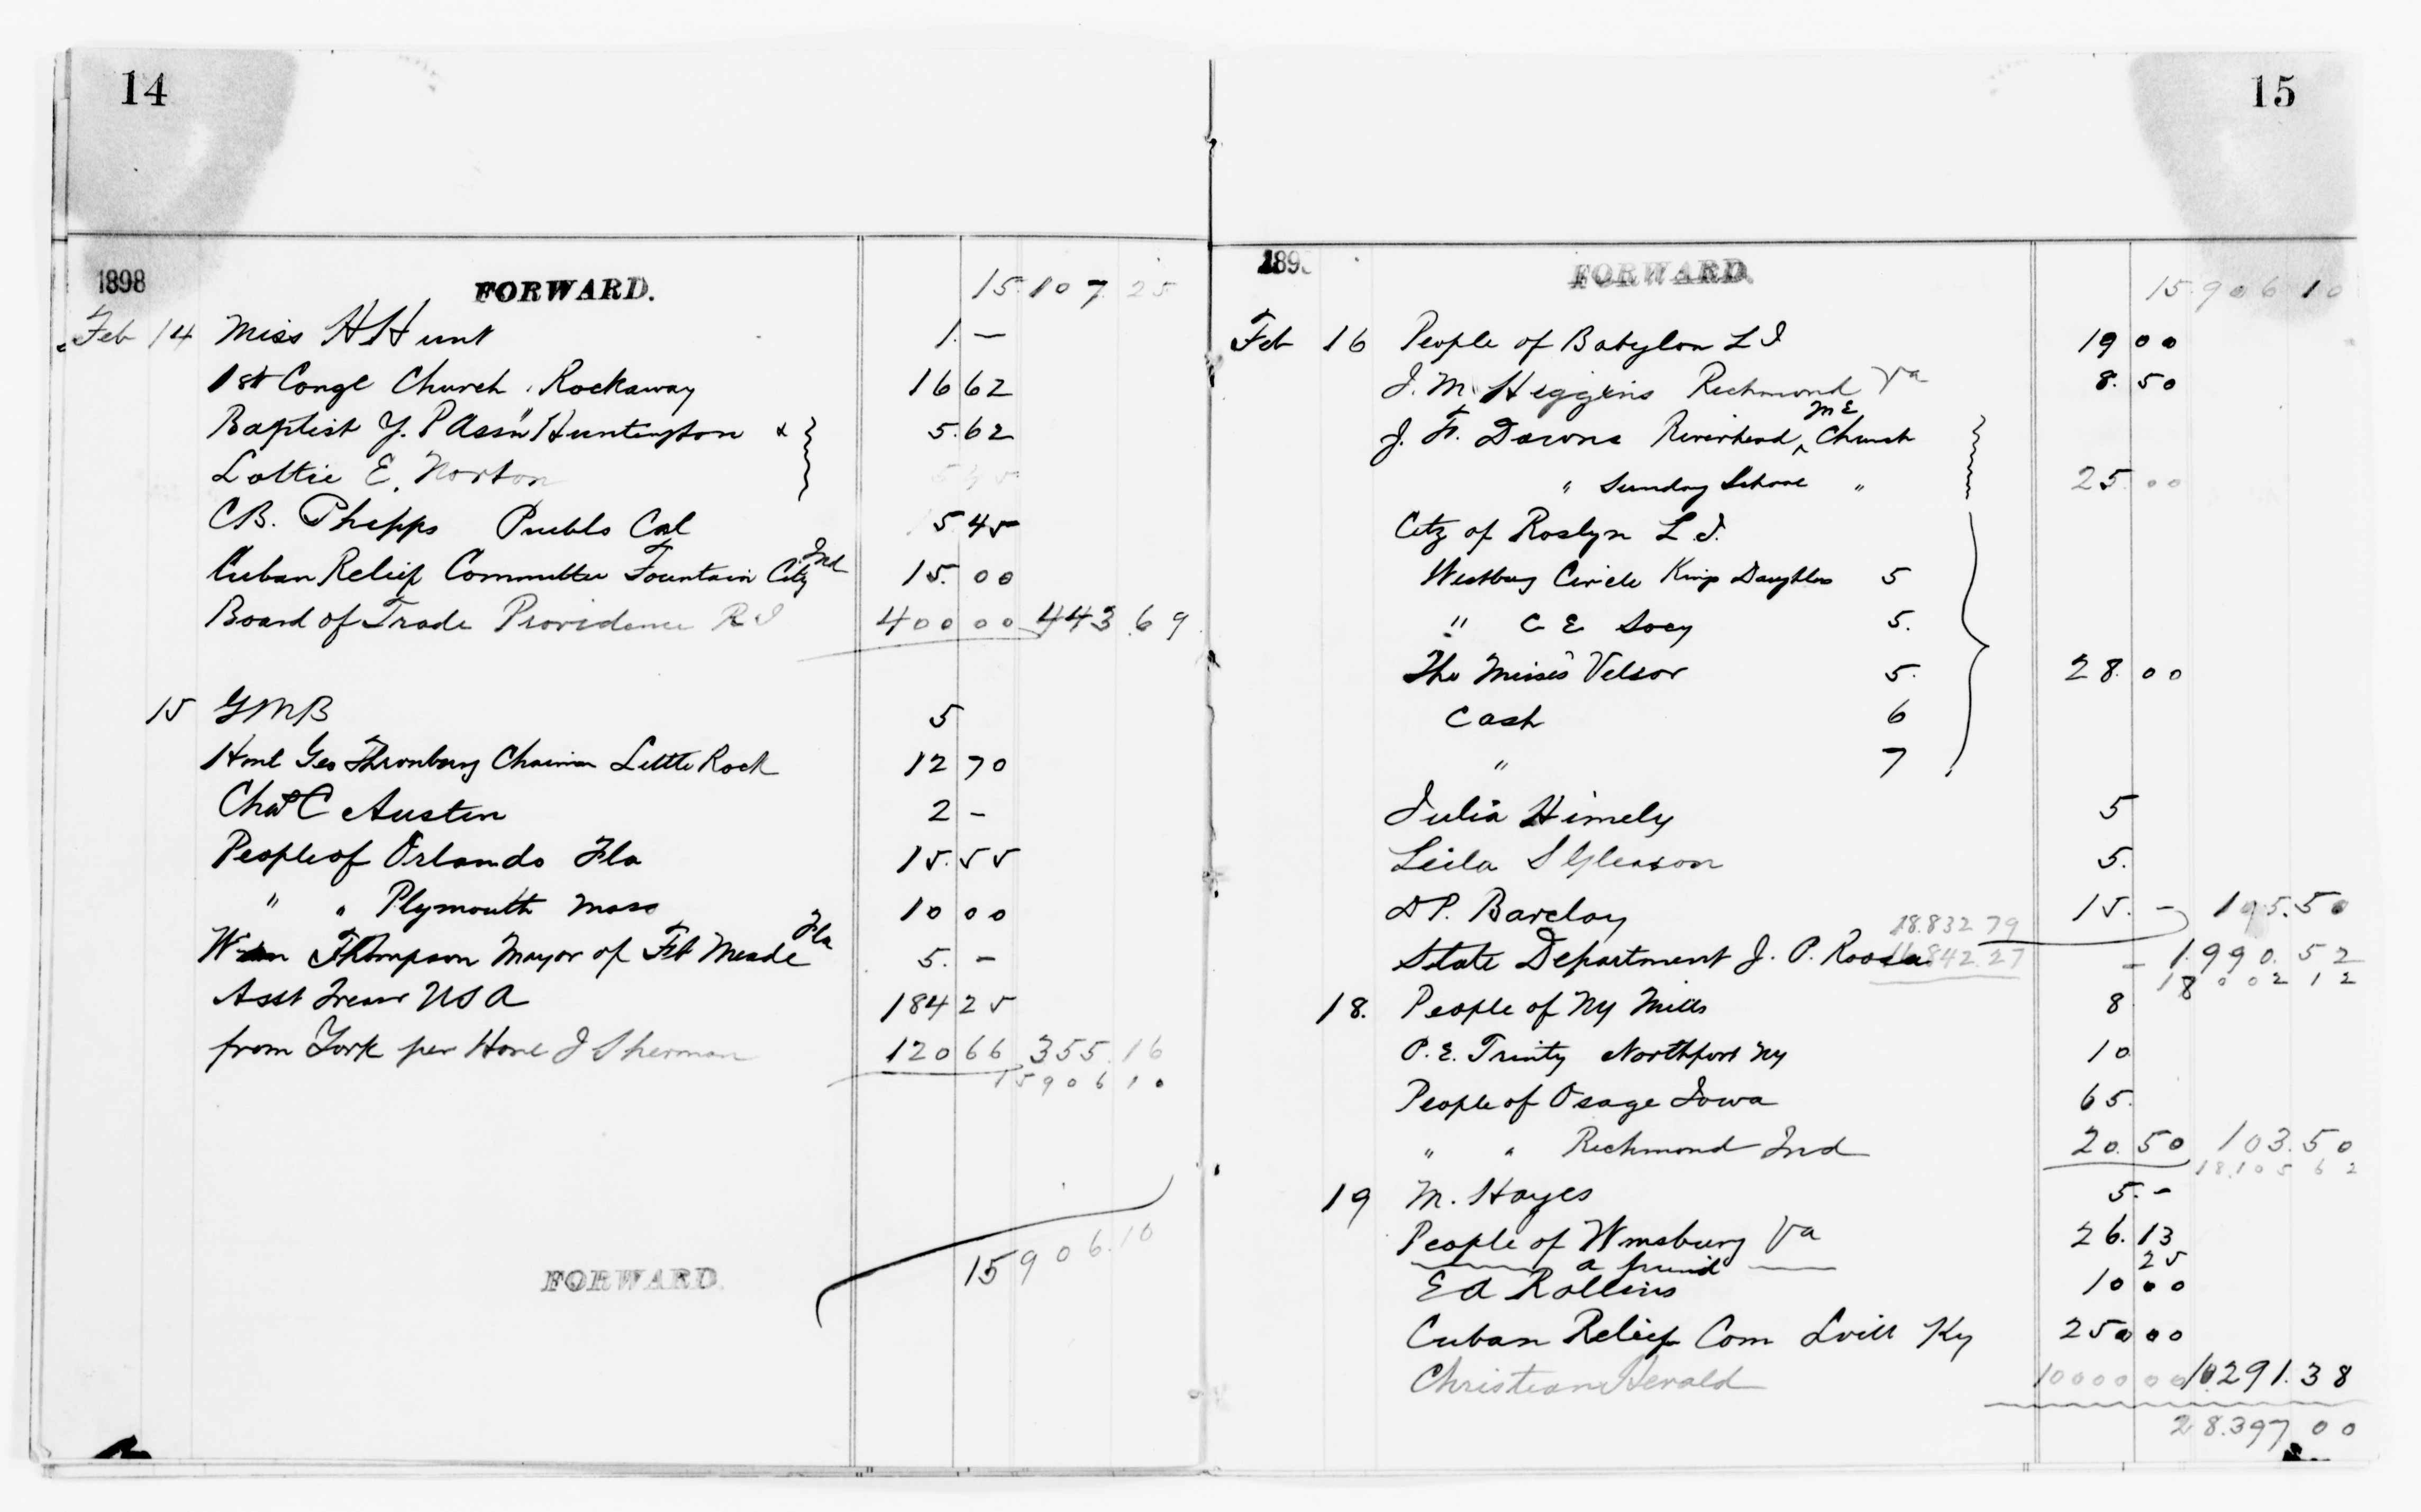 14
1898 FORWARD. 15.107 25
Feb 14 Miss H Hunt 1. —
1st Congl Church. Rockaway 16 62
Baptist Y. P Assn Huntington & 5.62
Lottie E. Norton
C B. Phepps Pueblo Col 5 45
Cuban Relief Committee Fountain City Ind 15. 00
Board of Trade Providence R I 400 00 443.69
15 G M B 5
Honl Geo Thronburg Chairman Little Rock 12 70
Chas C Austin 2 -
People of Orlando Fla 15.55
" " Plymouth Mass 10 00
Wm Thompson Mayor of Ft Meade Fla 5. -
Asst Treasr U S A 184 25
from York per Honl J Sherman 120 66 355.16
15906 10
15906.10
FORWARD.
15
189 FORWARD. 15.906 10
Feb 16 People of Babylon L I 19 00
J. M. Heggins Richmond Va 8. 50
J. F. Downs Riverhead M E Church
" Sunday School " 25.00
Citz of Roslyn L. I.
Westbury Circle Kings Daughters 5
" C E Socy 5.
The Misses Velsor 5. 28.00
Cash 6
" 7
Julia Himely 5
Leila S Gleason 5.
D P. Barclay 15. - 105.50
18.832 79
State Department J. P. Roosa 842.27 - 1.990.52
18 002 12
18. People of Ny Mills 8
P. E. Trinity Northport Ny 10
People of Osage Iowa 65.
" " Richmond Ind 20.50 103.50
18.105 62
19 M. Hayes 5. -
People of Wmsburg Va 26.13
a friend 25
E A Rollins 10 00
Cuban Relief Com Lvill Ky 250 00
Christian Herald 10000 00 10291.38
28.397 00